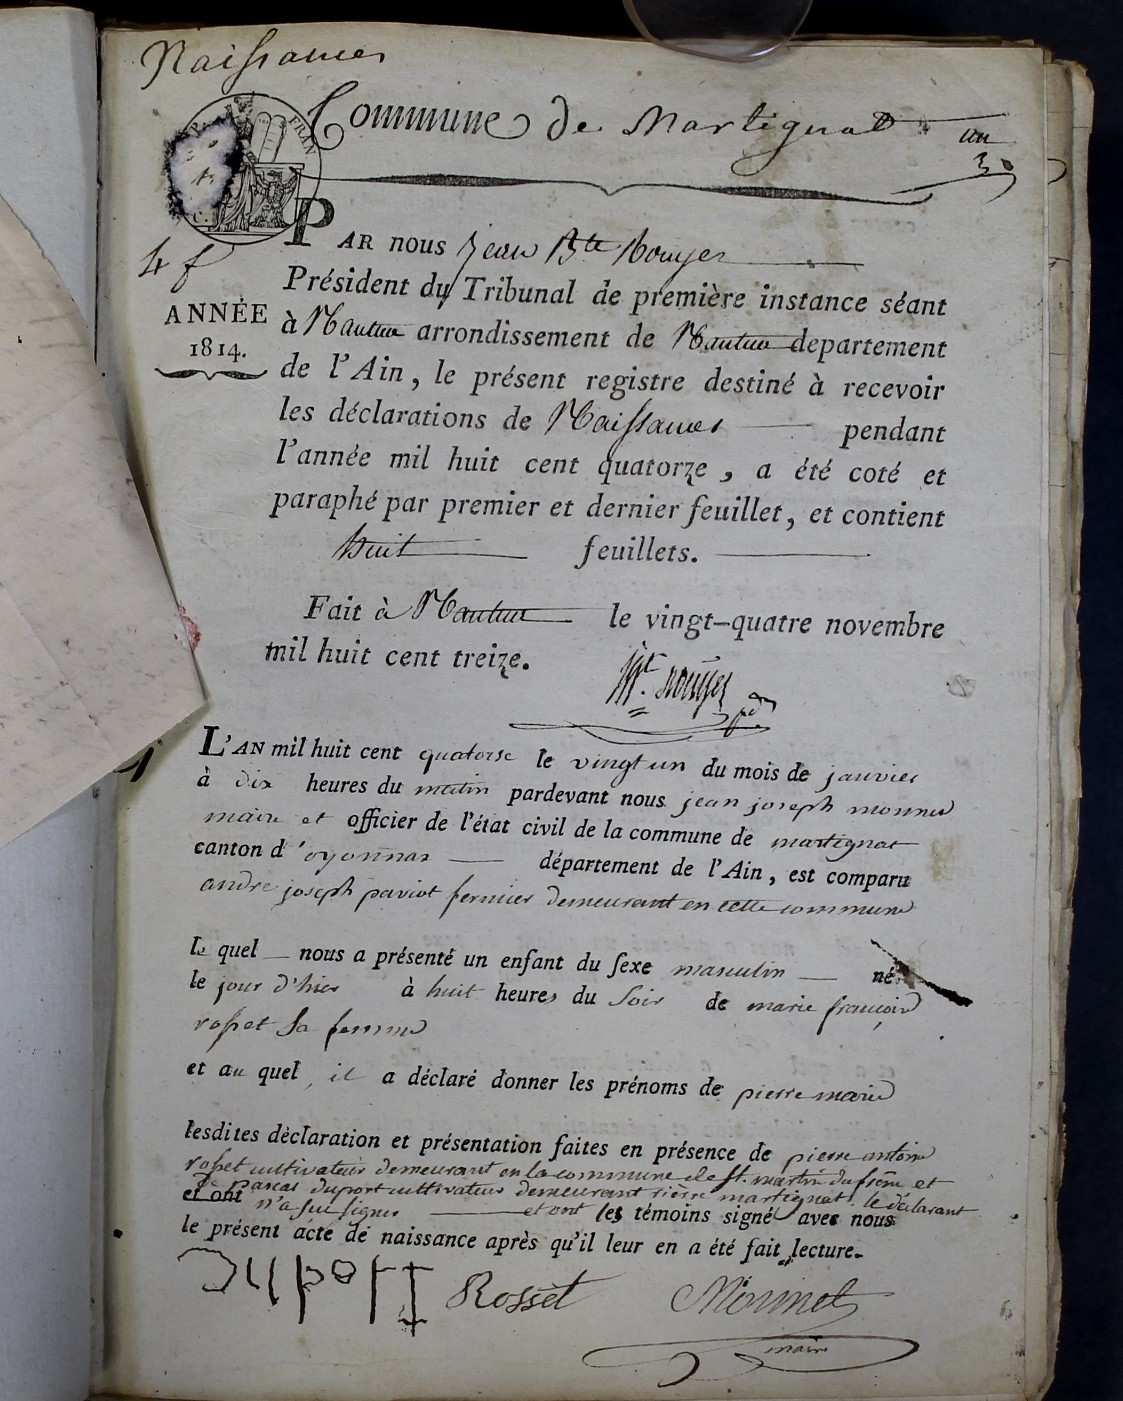 Naissances
Commune de Martignat
un
FRAN
PAR nous jean Bte Rouyer
4 f
Président du Tribunal de première instance séant
ANNÉE
1814.
à Nantua arrondissement de Nantua departement
de l'Ain, le présent registre destiné à recevoir
les déclarations de Naissances pendant
l'année mil huit cent quatorze, a été coté et
paraphé par premier et dernier feuillet, et contient
huit feuillets.
Fait à Nantua le vingt-quatre novembre
mil huit cent treize.
L'AN mil huit cent quatorse le vingt un du mois de janvier
à dix heures du matin pardevant nous jean joseph monnet
maire et officier de l'état civil de la commune de martignat
canton d'oyonnax département de l'Ain, est comparu
andre joseph paviot fermier demeurant en cette commune
le quel nous a présenté un enfant du sexe masculin né
le jour d'hier à huit heures du soir de marie françoise
rosset sa femme
et au quel il a déclaré donner les prénoms de pierre marie
lesdites déclaration et présentation faites en présence de pierre antoine
rosset cultivateur demeurant en la commune de st. martin du frene et
de pascal duport cultivateur demeurant rière martignat. le déclarant
et ont n'a sçu signer et ont les témoins signé avec nous
le présent acte de naissance après qu'il leur en a été fait lecture.
Duport Rosset Monnet
maire